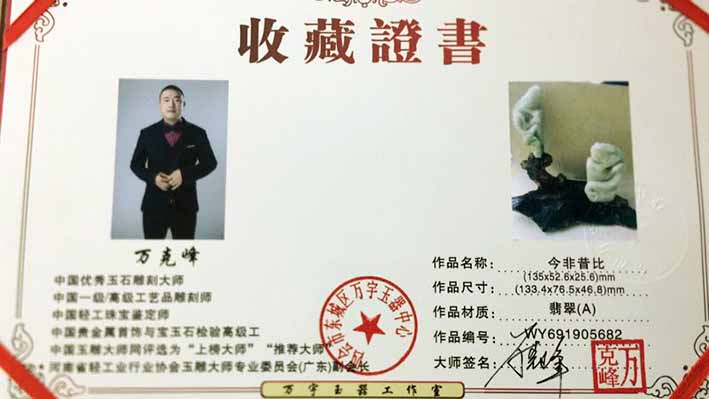 收藏證書
万克峰
中国优秀玉石雕刻大师
中国一级/高级工艺品雕刻师
中国轻工珠宝鉴定师
中国贵金属首饰与宝玉石检验高级工
中国玉雕大师网评选为“上榜大师”“推荐大师”
河南省轻工业行业协会玉雕大师专业委员会(广东)副会长
四会市东城区万字玉器中心
作品名称: 今非昔比
(135x52.6x25.6)mm
作品尺寸: (133.4x76.5x46.8)mm
作品材质: 翡翠(A)
作品编号: WY691905682
大师签名: 万克峰
万克峰
万字玉器工作室